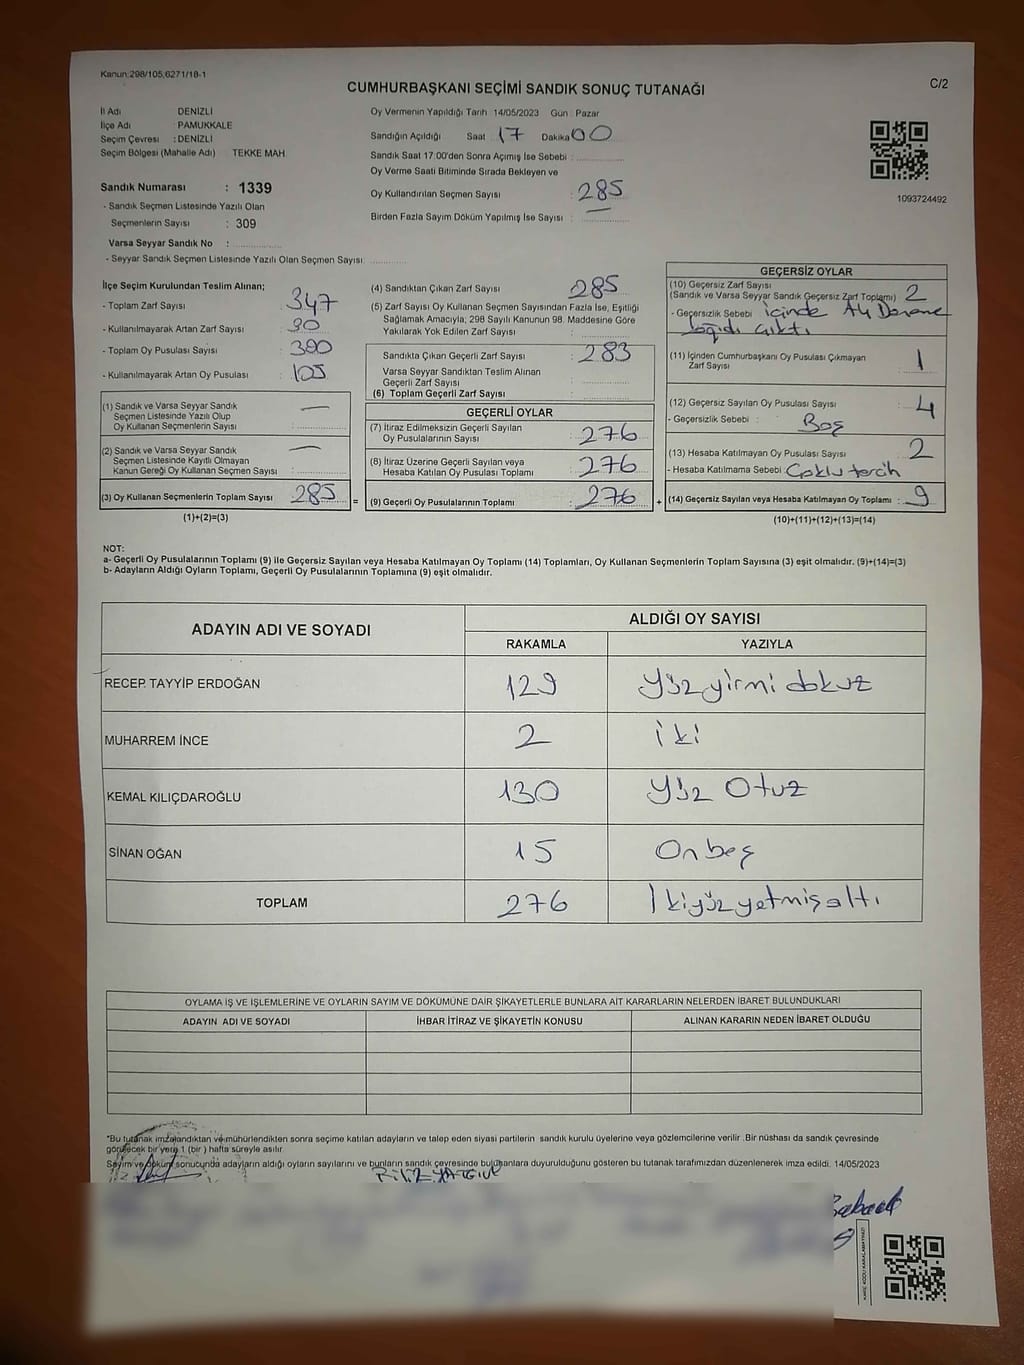 Kanun:298/105,6271/18-1
CUMHURBAŞKANI SEÇİMİ SANDIK SONUÇ TUTANAĞI
C/2
İl Adı DENİZLİ
İlçe Adı : PAMUKKALE
Seçim Çevresi : DENİZLİ
Seçim Bölgesi (Mahalle Adı) TEKKE MAH.
Oy Vermenin Yapıldığı Tarih 14/05/2023 Gün : Pazar
Sandığın Açıldığı Saat 17 Dakika 00
Sandık Saat 17:00'den Sonra Açımış İse Sebebi :
Oy Verme Saati Bitiminde Sırada Bekleyen ve
Oy Kullandırılan Seçmen Sayısı : 285
Birden Fazla Sayım Döküm Yapılmış İse Sayısı :
1093724492
Sandık Numarası : 1339
- Sandık Seçmen Listesinde Yazılı Olan
Seçmenlerin Sayısı : 309
Varsa Seyyar Sandık No :
- Seyyar Sandık Seçmen Listesinde Yazılı Olan Seçmen Sayısı:
İlçe Seçim Kurulundan Teslim Alınan;
- Toplam Zarf Sayısı : 347
- Kullanılmayarak Artan Zarf Sayısı : 90
- Toplam Oy Pusulası Sayısı : 390
- Kullanılmayarak Artan Oy Pusulası : 105
(1) Sandık ve Varsa Seyyar Sandık
Seçmen Listesinde Yazılı Olup
Oy Kullanan Seçmenlerin Sayısı : —
(2) Sandık ve Varsa Seyyar Sandık
Seçmen Listesinde Kayıtlı Olmayan
Kanun Gereği Oy Kullanan Seçmen Sayısı : —
(3) Oy Kullanan Seçmenlerin Toplam Sayısı : 285
(1)+(2)=(3)
(4) Sandıktan Çıkan Zarf Sayısı : 285
(5) Zarf Sayısı Oy Kullanan Seçmen Sayısından Fazla İse, Eşitliği
Sağlamak Amacıyla; 298 Sayılı Kanunun 98. Maddesine Göre
Yakılarak Yok Edilen Zarf Sayısı :
Sandıkta Çıkan Geçerli Zarf Sayısı : 283
Varsa Seyyar Sandıktan Teslim Alınan
Geçerli Zarf Sayısı :
(6) Toplam Geçerli Zarf Sayısı :
GEÇERLİ OYLAR
(7) İtiraz Edilmeksizin Geçerli Sayılan
Oy Pusulalarının Sayısı : 276
(8) İtiraz Üzerine Geçerli Sayılan veya
Hesaba Katılan Oy Pusulası Toplamı : 276
= (9) Geçerli Oy Pusulalarının Toplamı : 276 +
GEÇERSİZ OYLAR
(10) Geçersiz Zarf Sayısı
(Sandık ve Varsa Seyyar Sandık Geçersiz Zarf Toplamı) : 2
- Geçersizlik Sebebi : içinde
çıktı
(11) İçinden Cumhurbaşkanı Oy Pusulası Çıkmayan
Zarf Sayısı : 1
(12) Geçersiz Sayılan Oy Pusulası Sayısı : 4
- Geçersizlik Sebebi : Boş
(13) Hesaba Katılmayan Oy Pusulası Sayısı : 2
- Hesaba Katılmama Sebebi : Çoklu tercih
(14) Geçersiz Sayılan veya Hesaba Katılmayan Oy Toplamı : 9
(10)+(11)+(12)+(13)=(14)
NOT:
a- Geçerli Oy Pusulalarının Toplamı (9) ile Geçersiz Sayılan veya Hesaba Katılmayan Oy Toplamı (14) Toplamları, Oy Kullanan Seçmenlerin Toplam Sayısına (3) eşit olmalıdır. (9)+(14)=(3)
b- Adayların Aldığı Oyların Toplamı, Geçerli Oy Pusulalarının Toplamına (9) eşit olmalıdır.
ADAYIN ADI VE SOYADI ALDIĞI OY SAYISI
RAKAMLA YAZIYLA
RECEP TAYYİP ERDOĞAN 129 Yüz yirmi dokuz
MUHARREM İNCE 2 iki
KEMAL KILIÇDAROĞLU 130 Yüz Otuz
SİNAN OĞAN 15 Onbeş
TOPLAM 276 İkiyüz yetmiş altı
OYLAMA İŞ VE İŞLEMLERİNE VE OYLARIN SAYIM VE DÖKÜMÜNE DAİR ŞİKAYETLERLE BUNLARA AİT KARARLARIN NELERDEN İBARET BULUNDUKLARI
ADAYIN ADI VE SOYADI İHBAR İTİRAZ VE ŞİKAYETİN KONUSU ALINAN KARARIN NEDEN İBARET OLDUĞU
"Bu tutanak imzalandıktan ve mühürlendikten sonra seçime katılan adayların ve talep eden siyasi partilerin sandık kurulu üyelerine veya gözlemcilerine verilir .Bir nüshası da sandık çevresinde
görülecek bir yere 1 (bir ) hafta süreyle asılır.
Sayım ve döküm sonucunda adayların aldığı oyların sayılarını ve bunların sandık çevresinde bulunanlara duyurulduğunu gösteren bu tutanak tarafımızdan düzenlenerek imza edildi. 14/05/2023